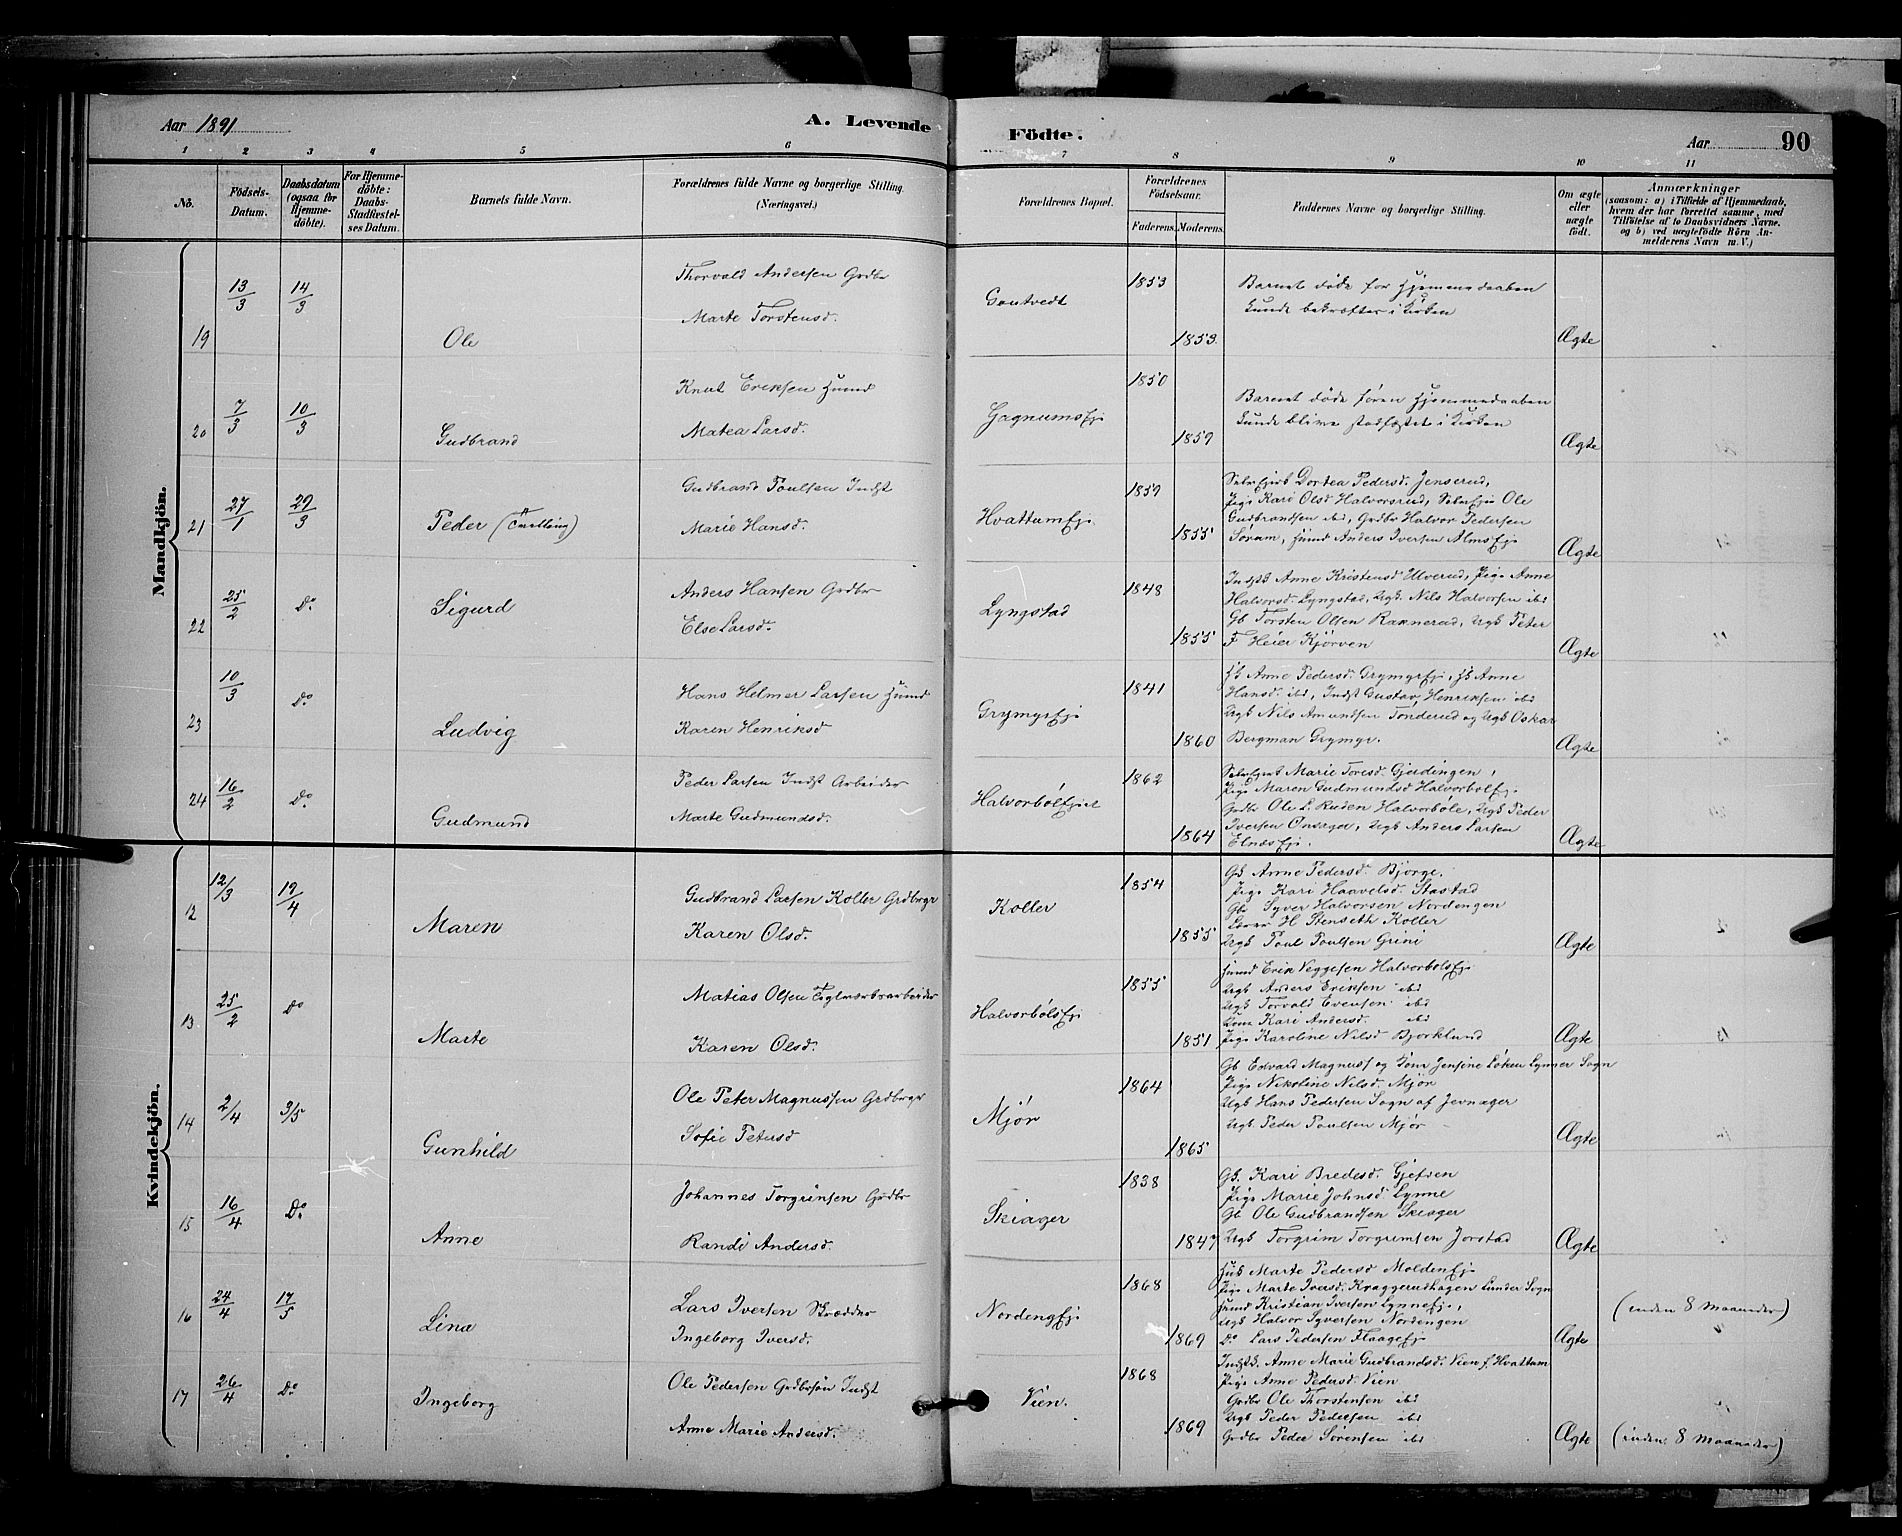 Aar 1891
A. Levende
Födte.
Aar
90
1 2 3 4 5 6 7 8 9 10 11
No.
Födsels-
Datum.
Daabsdatum
(ogsaa for
Hjemme-
döbte).
For Hjemme-
döbte:
Daabs-
Stadfæstel-
ses Datum.
Barnets fulde Navn.
Forældrenes fulde Navne og borgerlige Stilling.
(Næringsvei.)
Forældrenes Bopæl.
Forældrenes
Födselsaar.
Faderens. Moderens.
Faddernes Navne og borgerlige Stilling.
Om ægte
eller
uægte
födt.
Anmærkninger
(saasom: a) i Tilfælde af Hjemmedaab,
hvem der har forrettet samme, med
Tilföielse af to Daabsvidners Navne.
og b) ved uægtefödte Börn An-
melderens Navn m. V.)
Mandkjön.
19 13/3 14/3 Ole
Thorvald Andersen Grdbr
Marte Torstensd.
Gautvedt 1853 1853.
Barnet døde før Hjemmedaaben
kunde bekræftes i Kirken
Ægte
20 7/3 10/3 Gudbrand
Knut Eriksen Husmd
Matea Larsd.
Gagnumsej 1850 1857
Barnet døde føren Hjemmedaaben
kunde blive stadfæstet i Kirken
Ægte
21 27/1 29/3 Peder (Tvilling)
Gudbrand Poulsen Indst
Marie Hansd.
Hvattumej. 1857 1855
Dortea Pedersd. Jenserud,
Pige Kari Olsd Halvorsrud, Ole
Gudbrandsen ibd, Grdbr Halvor Pedersen
Sørum, Husmd Anders Iversen Almsej
Ægte
22 25/2 Do. Sigurd
Anders Hansen Grdbr
Else Larsd.
Lyngstad 1848 1855
Indstk Anne Kristensd Ulverud, Pige Anne
Halvorsd. Lyngstad, Ugk. Nils Halvorsen ibd
Gb Torsten Olsen Ramnerud, Ugk Peter
F Heier Kjørven
Ægte
23 10/3 Do Ludvig
Hans Helmer Larsen Husmd
Karen Henriksd
Grymyrej 1841 1860
Anne Pedersd. Grymyrej, Anne
Hansd. ibd, Indst Gustav Henriksen ibd
Ugk Nils Amundsen Tønderud og Ugk Oskar
Bergman Grymyr.
Ægte
24 16/2 Do. Gudmund
Peder Larsen Indst Arbeider
Marte Gudmundsd.
Halvorbölejet 1862 1864
Marie Toresd. Gjerdingen,
Pige Maren Gudmundsd Halvorbolej
Grdbr Ole L. Ruden Halvorbole, Ugk Peder
Iversen Onsager, Ugk Anders Larsen
Elnæsej.
Ægte
Kvindekjön.
12 12/3 19/4 Maren
Gudbrand Larsen Koller Grdbrgr
Karen Olsd.
Koller 1854 1855
Gk Anne Pedersd. Bjørge.
Pige Kari Haavelsd. Stastad
Gb Syver Halvorsen Nordengen
Lærer H Stenseth Koller
Ugk Poul Poulsen Grini
Ægte
13 25/2 Do Marte
Matias Olsen Teglværksarbeider
Karen Olsd.
Halvorbölsej 1855 1851
Husmd Erik Veggesen Halvorbolsej
Ugk Anders Eriksen ibd
Ugk Torvald Evensen ibd
Kone Kari Andersd. ibd
Pige Karoline Nilsd Bjørklund
Ægte 13
14 2/4 3/5 Gunhild
Ole Peter Magnussen Grdbrgr
Sofie Petersd
Mjør 1864 1865
Gb Edvard Magnuss og Kone Jensine Løken Lynner Sogn
Pige Nikoline Nilsd. Mjør
Ugk Hans Pedersen Sogn af Jevnager
Ugk. Peder Poulsen Mjør
Ægte
15 16/4 Do. Anne
Johannes Torgrimsen Grdbr
Randi Andersd.
Skiager 1838 1847
Gk. Kari Bredesd. Gjefsen
Pige Marie Johnsd Lynne
Gb Ole Gudbrandsen Skiager
Ugk Torgrim Torgrimsen Jorstad
Ægte
16 24/4 17/5 Lina
Lars Iversen Skrædder
Ingeborg Iversd.
Nordengej 1868 1869
Husk Marte Pedersd Moldenej
Pige Marte Iversd. Kraggerudhagen Lunder Sogn
Husmd Kristian Iversen Lynneej,
Ugk Halvor Syversen Nordengen
Do Lars Pedersen Flaageej
Ægte
(inden 8 Maaneder)
17 26/4 Do Ingeborg
Ole Pedersen Grdbrsøn Indst
Anne Marie Andersd.
Vien. 1868 1869
Indstk. Anne Marie Gudbrandsd. Vien f. Hvattum
Pige Anne Pedersd. Vien
Grdbr Ole Thorstensen ibd
Ugk Peder Pedersen ibd
Grdbr Peder Sørensen ibd
Ægte
(inden 8 Maaneder)